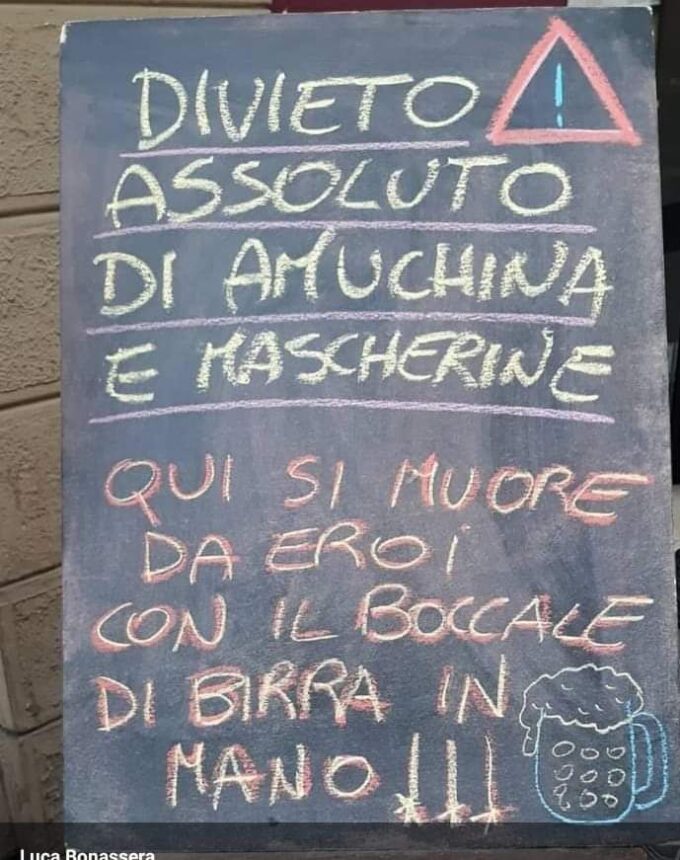 DIVIETO
ASSOLUTO
DI AMUCHINA
E MASCHERINE
QUI SI MUORE
DA EROi
CON IL BOCCALE
DI BIRRA IN
MANO!!!
Luca Bonassera